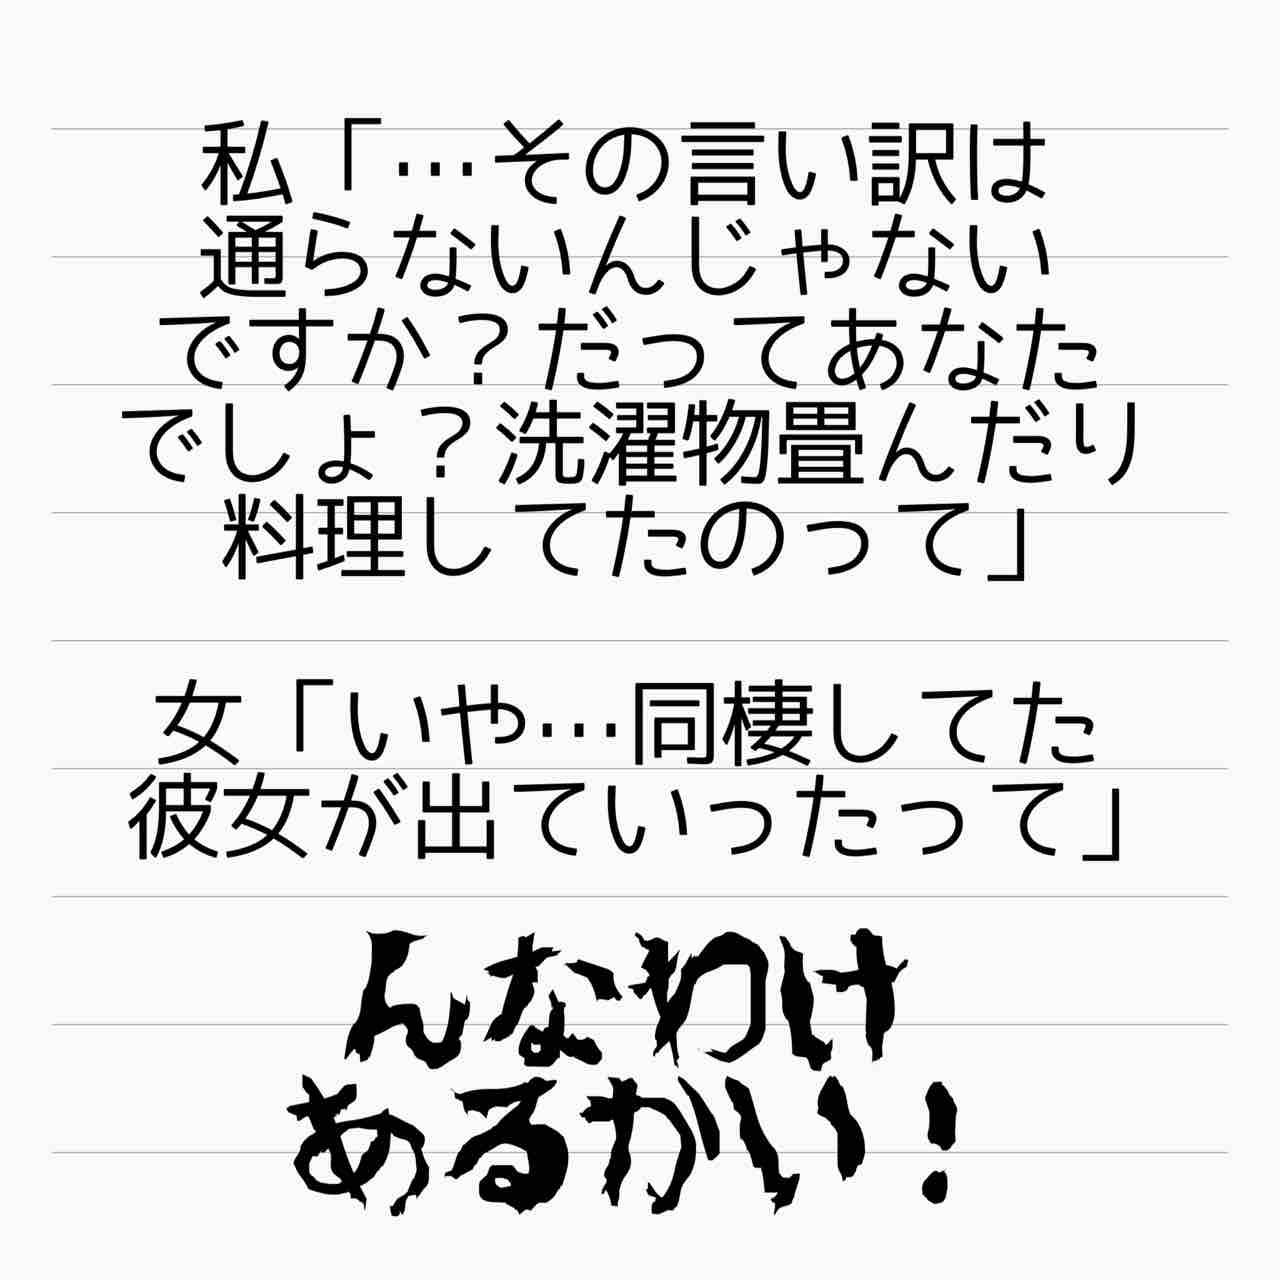 私「…その言い訳は
通らないんじゃない
ですか？だってあなた
でしょ？洗濯物畳んだり
料理してたのって」
女「いや…同棲してた
彼女が出ていったって」
んなわけ
あるかい！